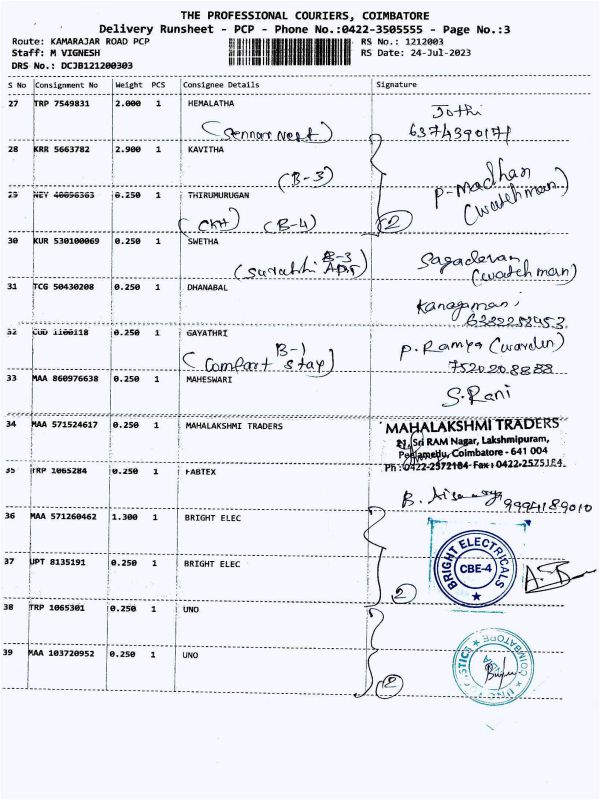 THE PROFESSIONAL COURIERS, COIMBATORE
Delivery Runsheet - PCP - Phone No.:0422-3505555 - Page No.:3
Route: KAMARAJAR ROAD PCP RS No.: 1212003
Staff: M VIGNESH RS Date: 24-Jul-2023
DRS No.: DCJB121200303
S No Consignment No Weight PCS Consignee Details Signature
27 TRP 7549831 2.000 1 HEMALATHA Jothi
6374390171
28 KRR 5663782 2.900 1 KAVITHA
(B-3) P-Madhan
(watchman)
29 NEY 40096363 0.250 1 THIRUMURUGAN
(B-4) 2
30 KUR 530100069 0.250 1 SWETHA Sagadevan
B-3 (watchman)
(Surabhi Apt)
31 TCG 50430208 0.250 1 DHANABAL Kanagamani
32 CUD 1100118 0.250 1 GAYATHRI P. Ramya (warden)
B-1
(Comfort Stay) 7520208888
33 MAA 860976638 0.250 1 MAHESWARI S.Rani
34 MAA 571524617 0.250 1 MAHALAKSHMI TRADERS MAHALAKSHMI TRADERS
21, Sri RAM Nagar, Lakshmipuram,
Peelamedu, Coimbatore - 641 004
Ph : 0422-2572184 Fax : 0422-2575184
35 TRP 1065284 0.250 1 FABTEX
B. 9994189010
36 MAA 571260462 1.300 1 BRIGHT ELEC
BRIGHT ELECTRICALS
CBE-4
37 UPT 8135191 0.250 1 BRIGHT ELEC
2
38 TRP 1065301 0.250 1 UNO
COIMBATORE
39 MAA 103720952 0.250 1 UNO
2